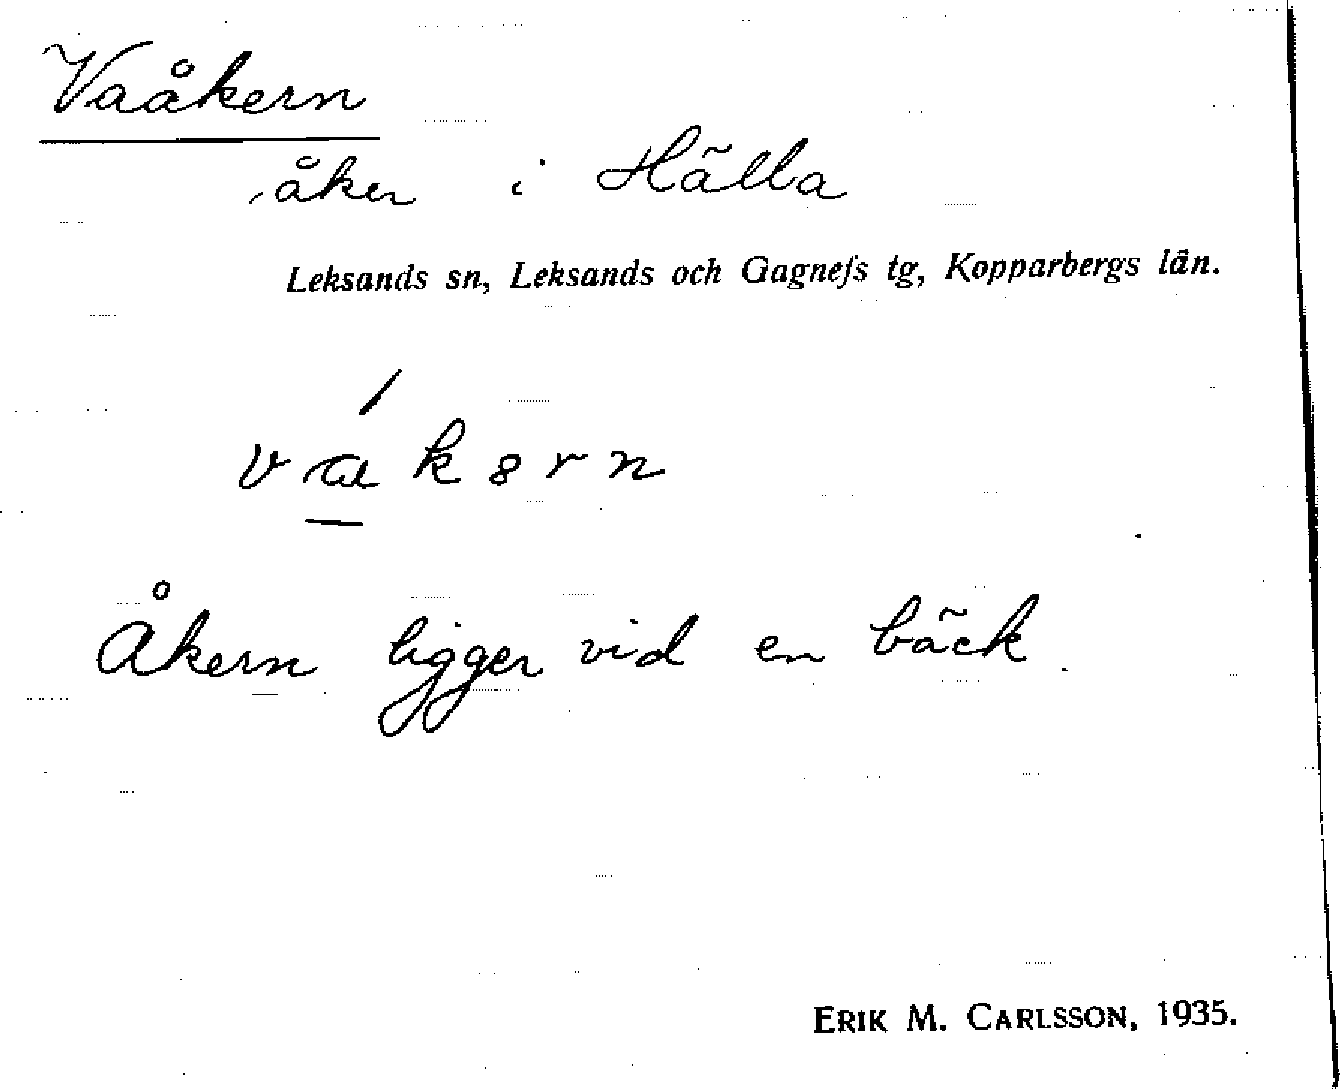 Vaåkern
åker i Hälla
Leksands sn, Leksands och Gagnefs tg, Kopparbergs län.
vakərn
Åkern ligger vid en bäck.
ERIK M. CARLSSON, 1935.